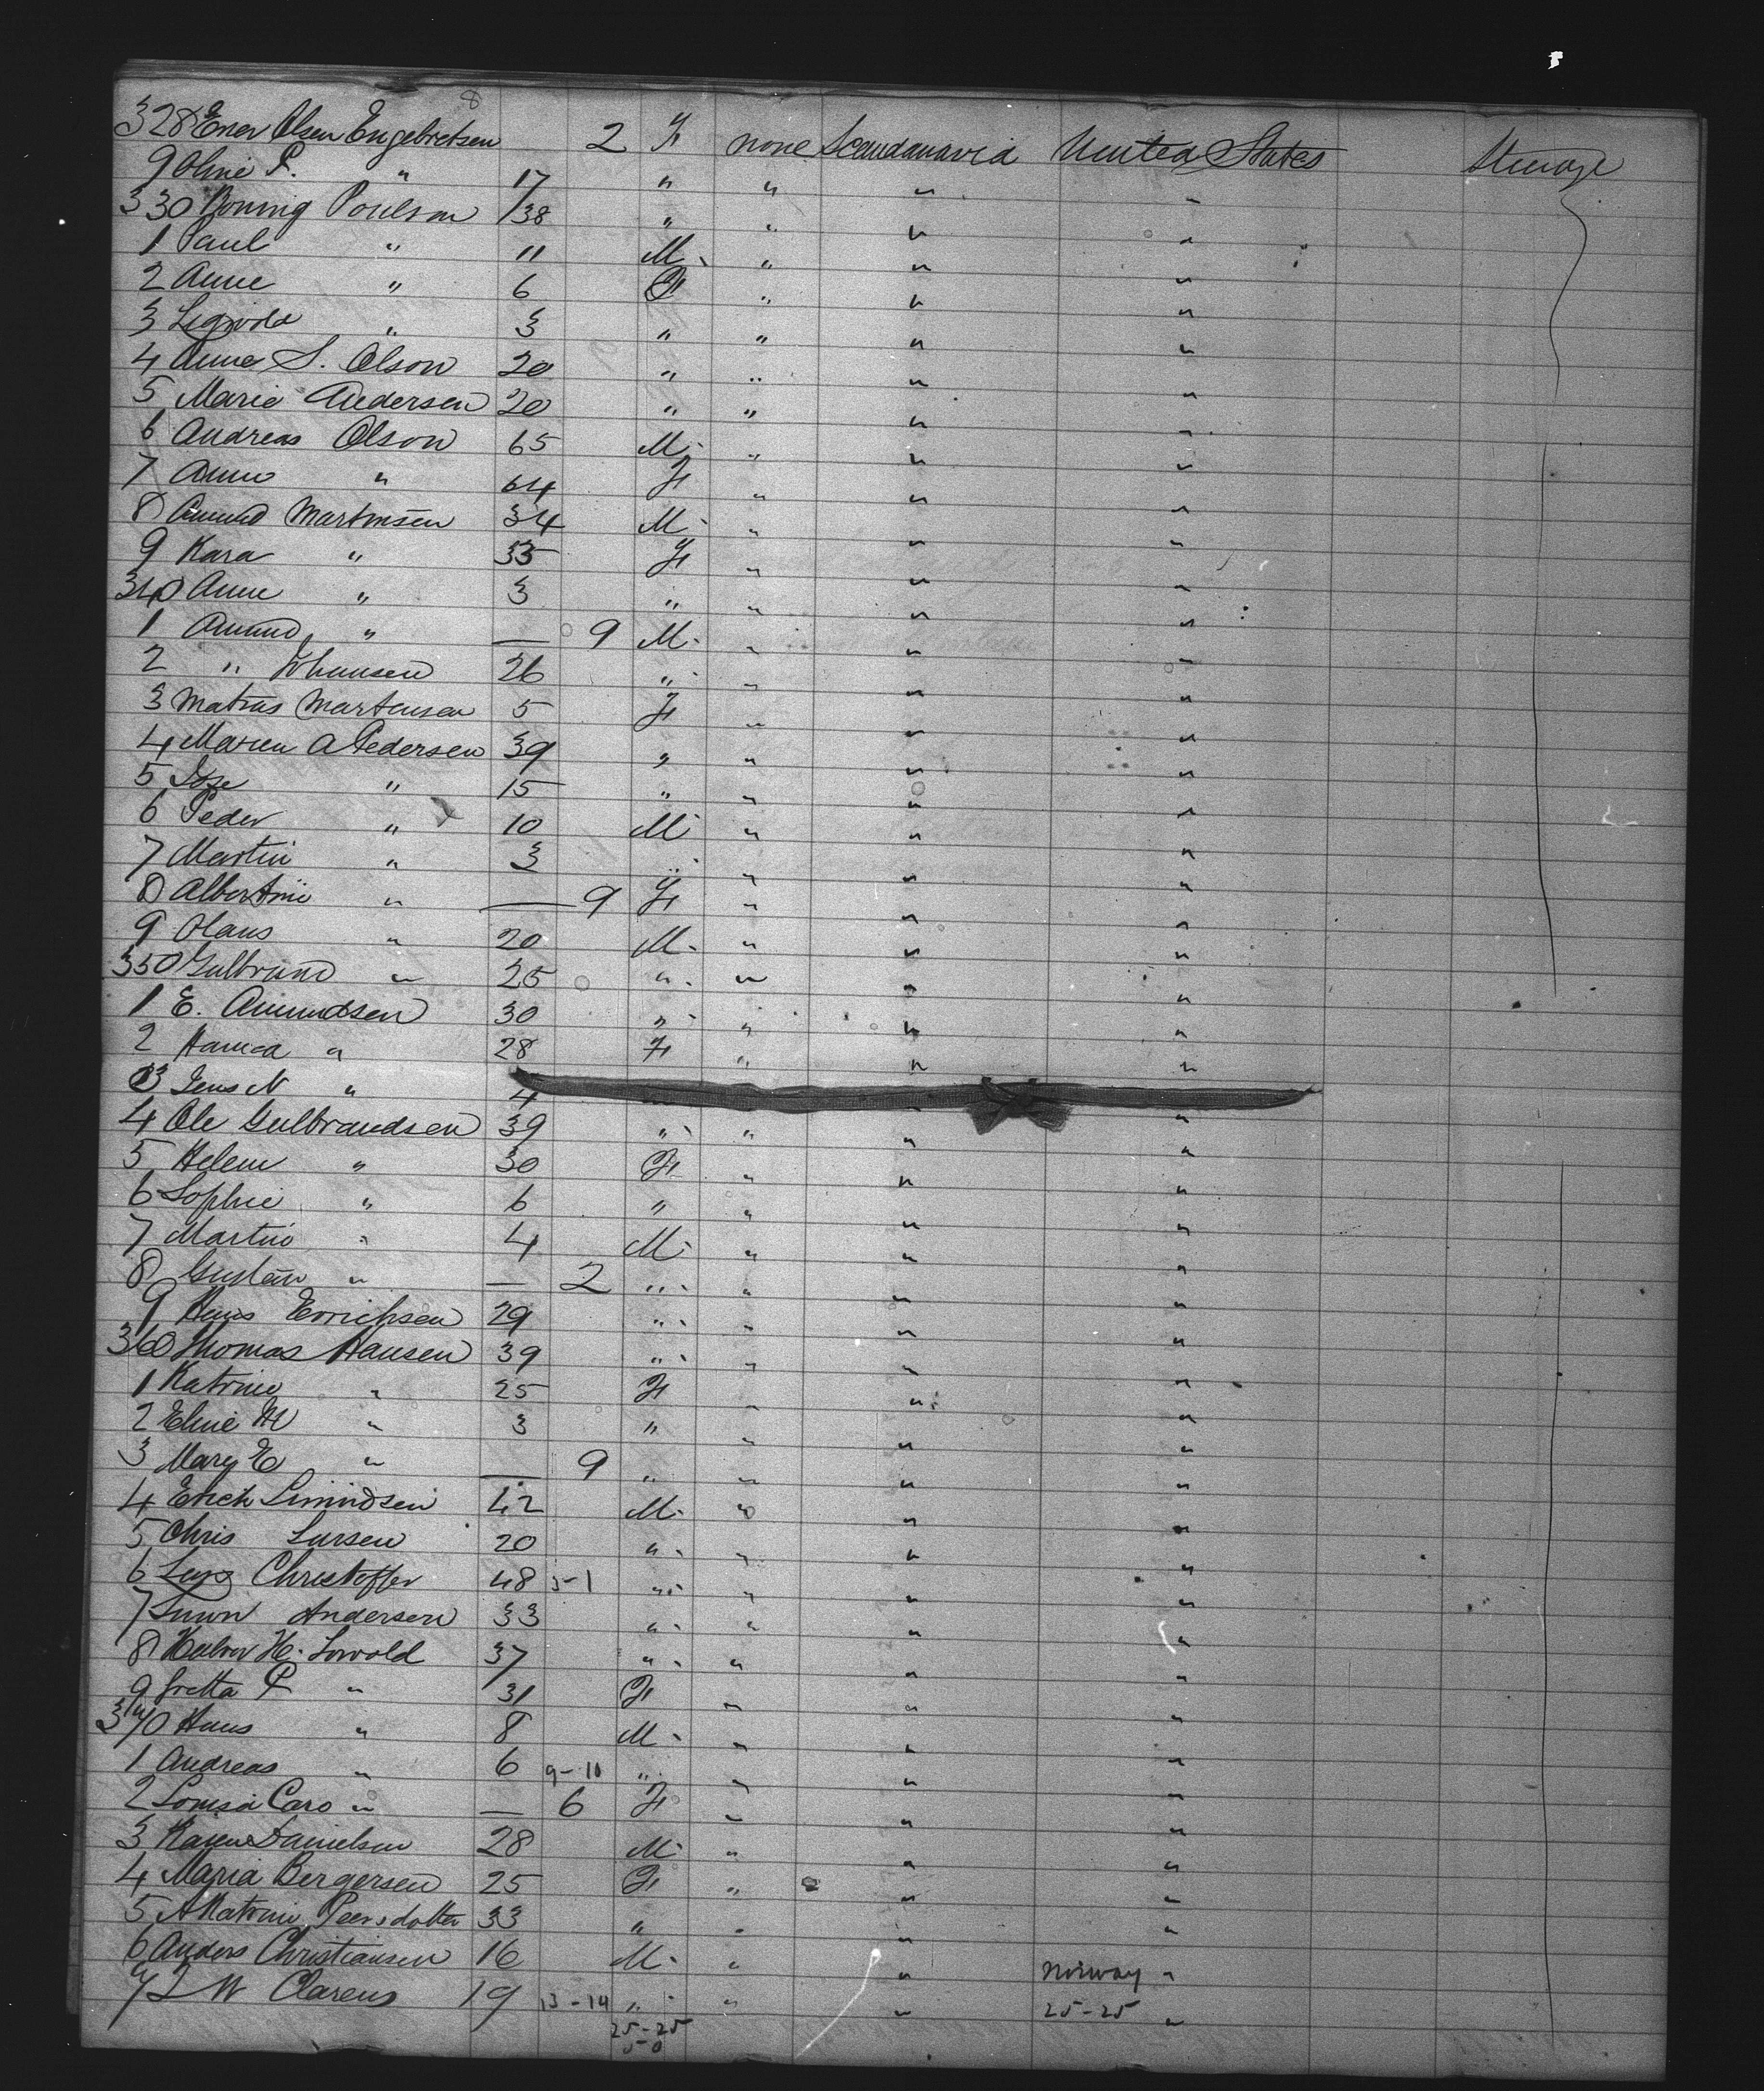 8
328 Ener Olsen Engebretsen 2 F none Scandanavia United States Steerage
9 Oline P. " 17 " " " "
330 Poulson 38 " " " "
1 Paul " 11 M. " " "
2 Anne " 6 F " " "
3 " 3 " " " "
4 Anne S. Olson 20 " " " "
5 Marie Andersen 20 " " " "
6 Andreas Olson 65 M. " " "
7 Anne " 64 F " " "
8 Amund Martinsen 34 M. " " "
9 Kara " 33 F " " "
340 Anne " 3 " " " "
1 Amund " — 9 M. " " "
2 " Johansen 26 " " " "
3 Matias Martensen 5 F " " "
4 Maren A Pedersen 39 " " " "
5 " 15 " " " "
6 Peder " 10 M " " "
7 Martin " 3 " " " "
8 Albertine " — 9 F " " "
9 Olaus " 20 M. " " "
350 Gulbrand " 25 " " " "
1 E. Amundsen 30 " " " "
2 " 28 F " " "
3 Jens N " 4 " "
4 Ole Gulbrandsen 39 " " " "
5 Helene " 30 F " " "
6 Sophie " 6 " " " "
7 Martin " 4 M. " " "
8 Gustav " — 2 " " " "
9 Hans Errichsen 29 " " " "
360 Thomas Hansen 39 " " " "
1 Katrine " 25 F " " "
2 Eline M " 3 " " " "
3 Mary E " — 9 " " " "
4 Erich 42 M. " " "
5 Chris Larsen 20 " " " "
6 Christoffer 48 5-1 " " " "
7 Andersen 33 " " " "
8 H. 37 " " " "
9 Gretta P " 31 F " " "
370 Hans " 8 M. " " "
1 Andreas " 6 9-10 " " " "
2 Louisa Caro " — 6 F " " "
3 Karen Danielsen 28 M. " " "
4 Maria Bergersen 25 F " " "
5 A Katrine Peersdotter 33 " " " "
6 Anders Christiansen 16 M. " " Norway "
7 L W Clarens 19 13-14 " " " 25-25 "
25-25
50